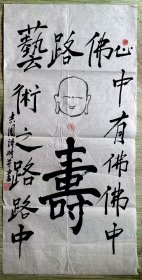 心中有佛佛中
佛
路
藝術之路路中
壽